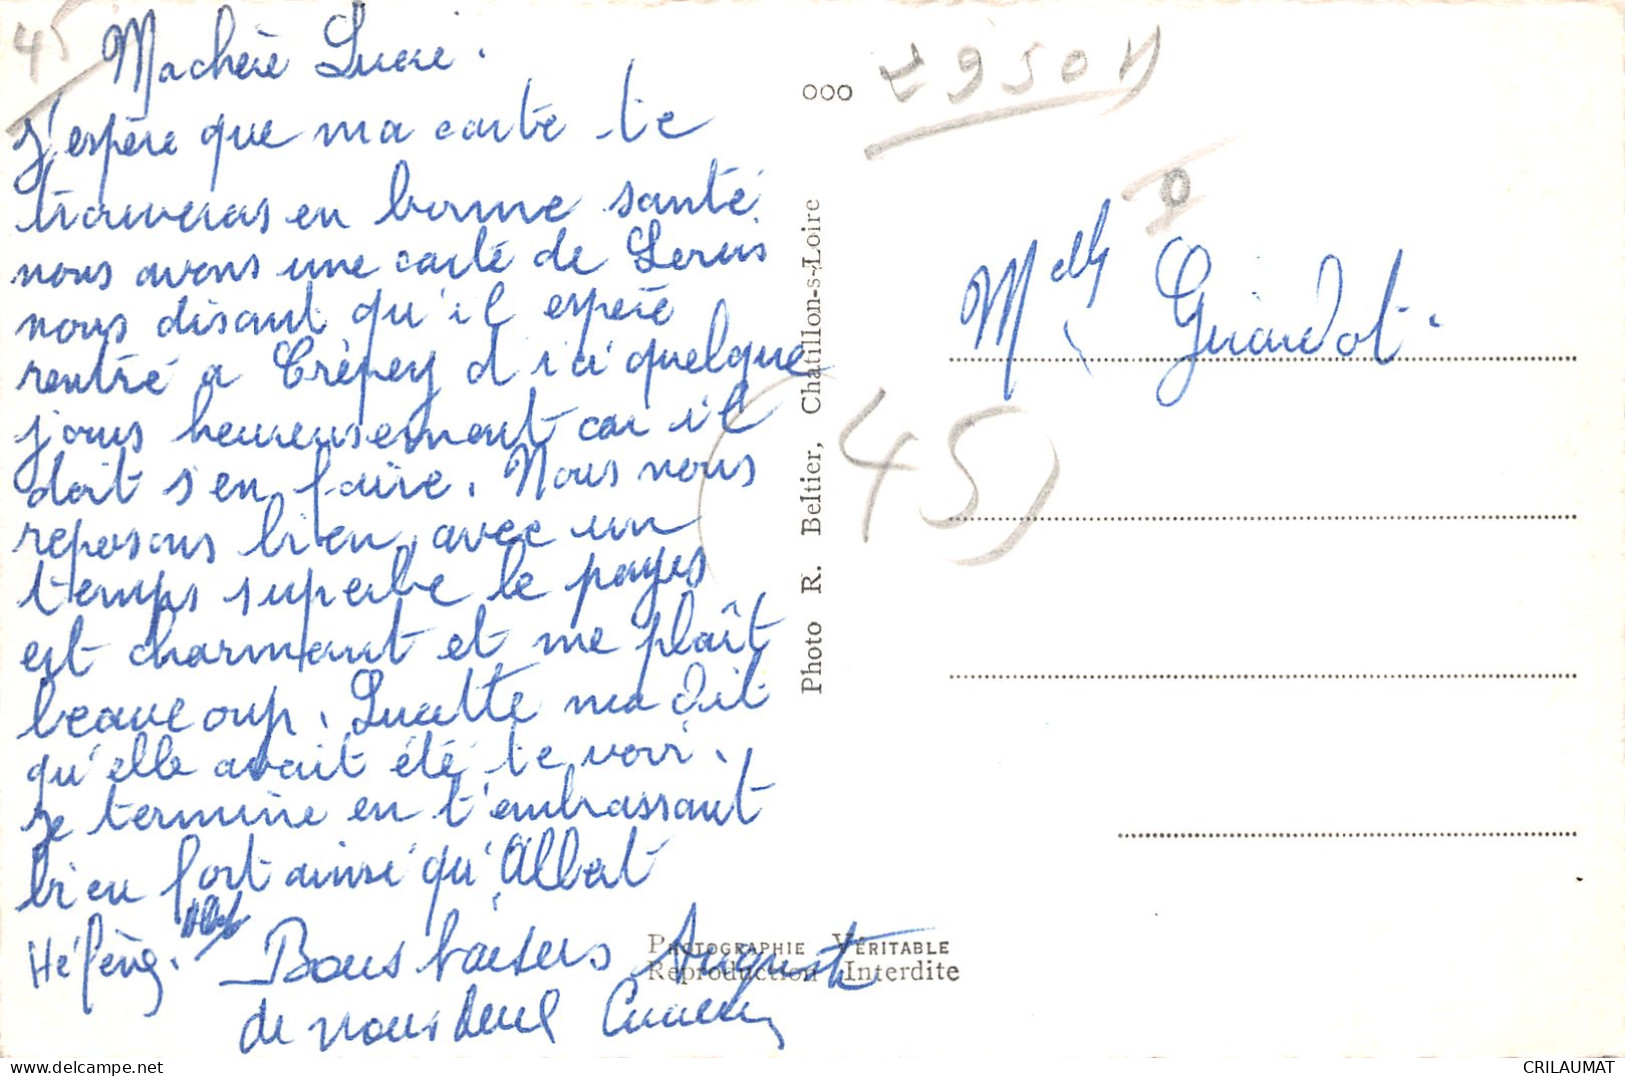 45
Ma chère Lucie.
J'espère que ma carte te
trouveras en bonne santé
nous avons une carte de
nous disant qu'il espère
rentré a Crépey d'ici quelque
jours heureusement car il
doit s'en faire. Nous nous
reposons bien, avec un
temps superbe le payes
est charmant et me plaît
beaucoup. Lucette ma dit
qu'elle avait été te voir.
Je termine en t'embrassant
bien fort ainsi qu'Albert
Hélène.
Bons baisers Auguste
de nous deux
ooo
Photo R. Beltier, Chatillon-s-Loire
Photographie Véritable
Reproduction Interdite
Melle Girardot.
(45)